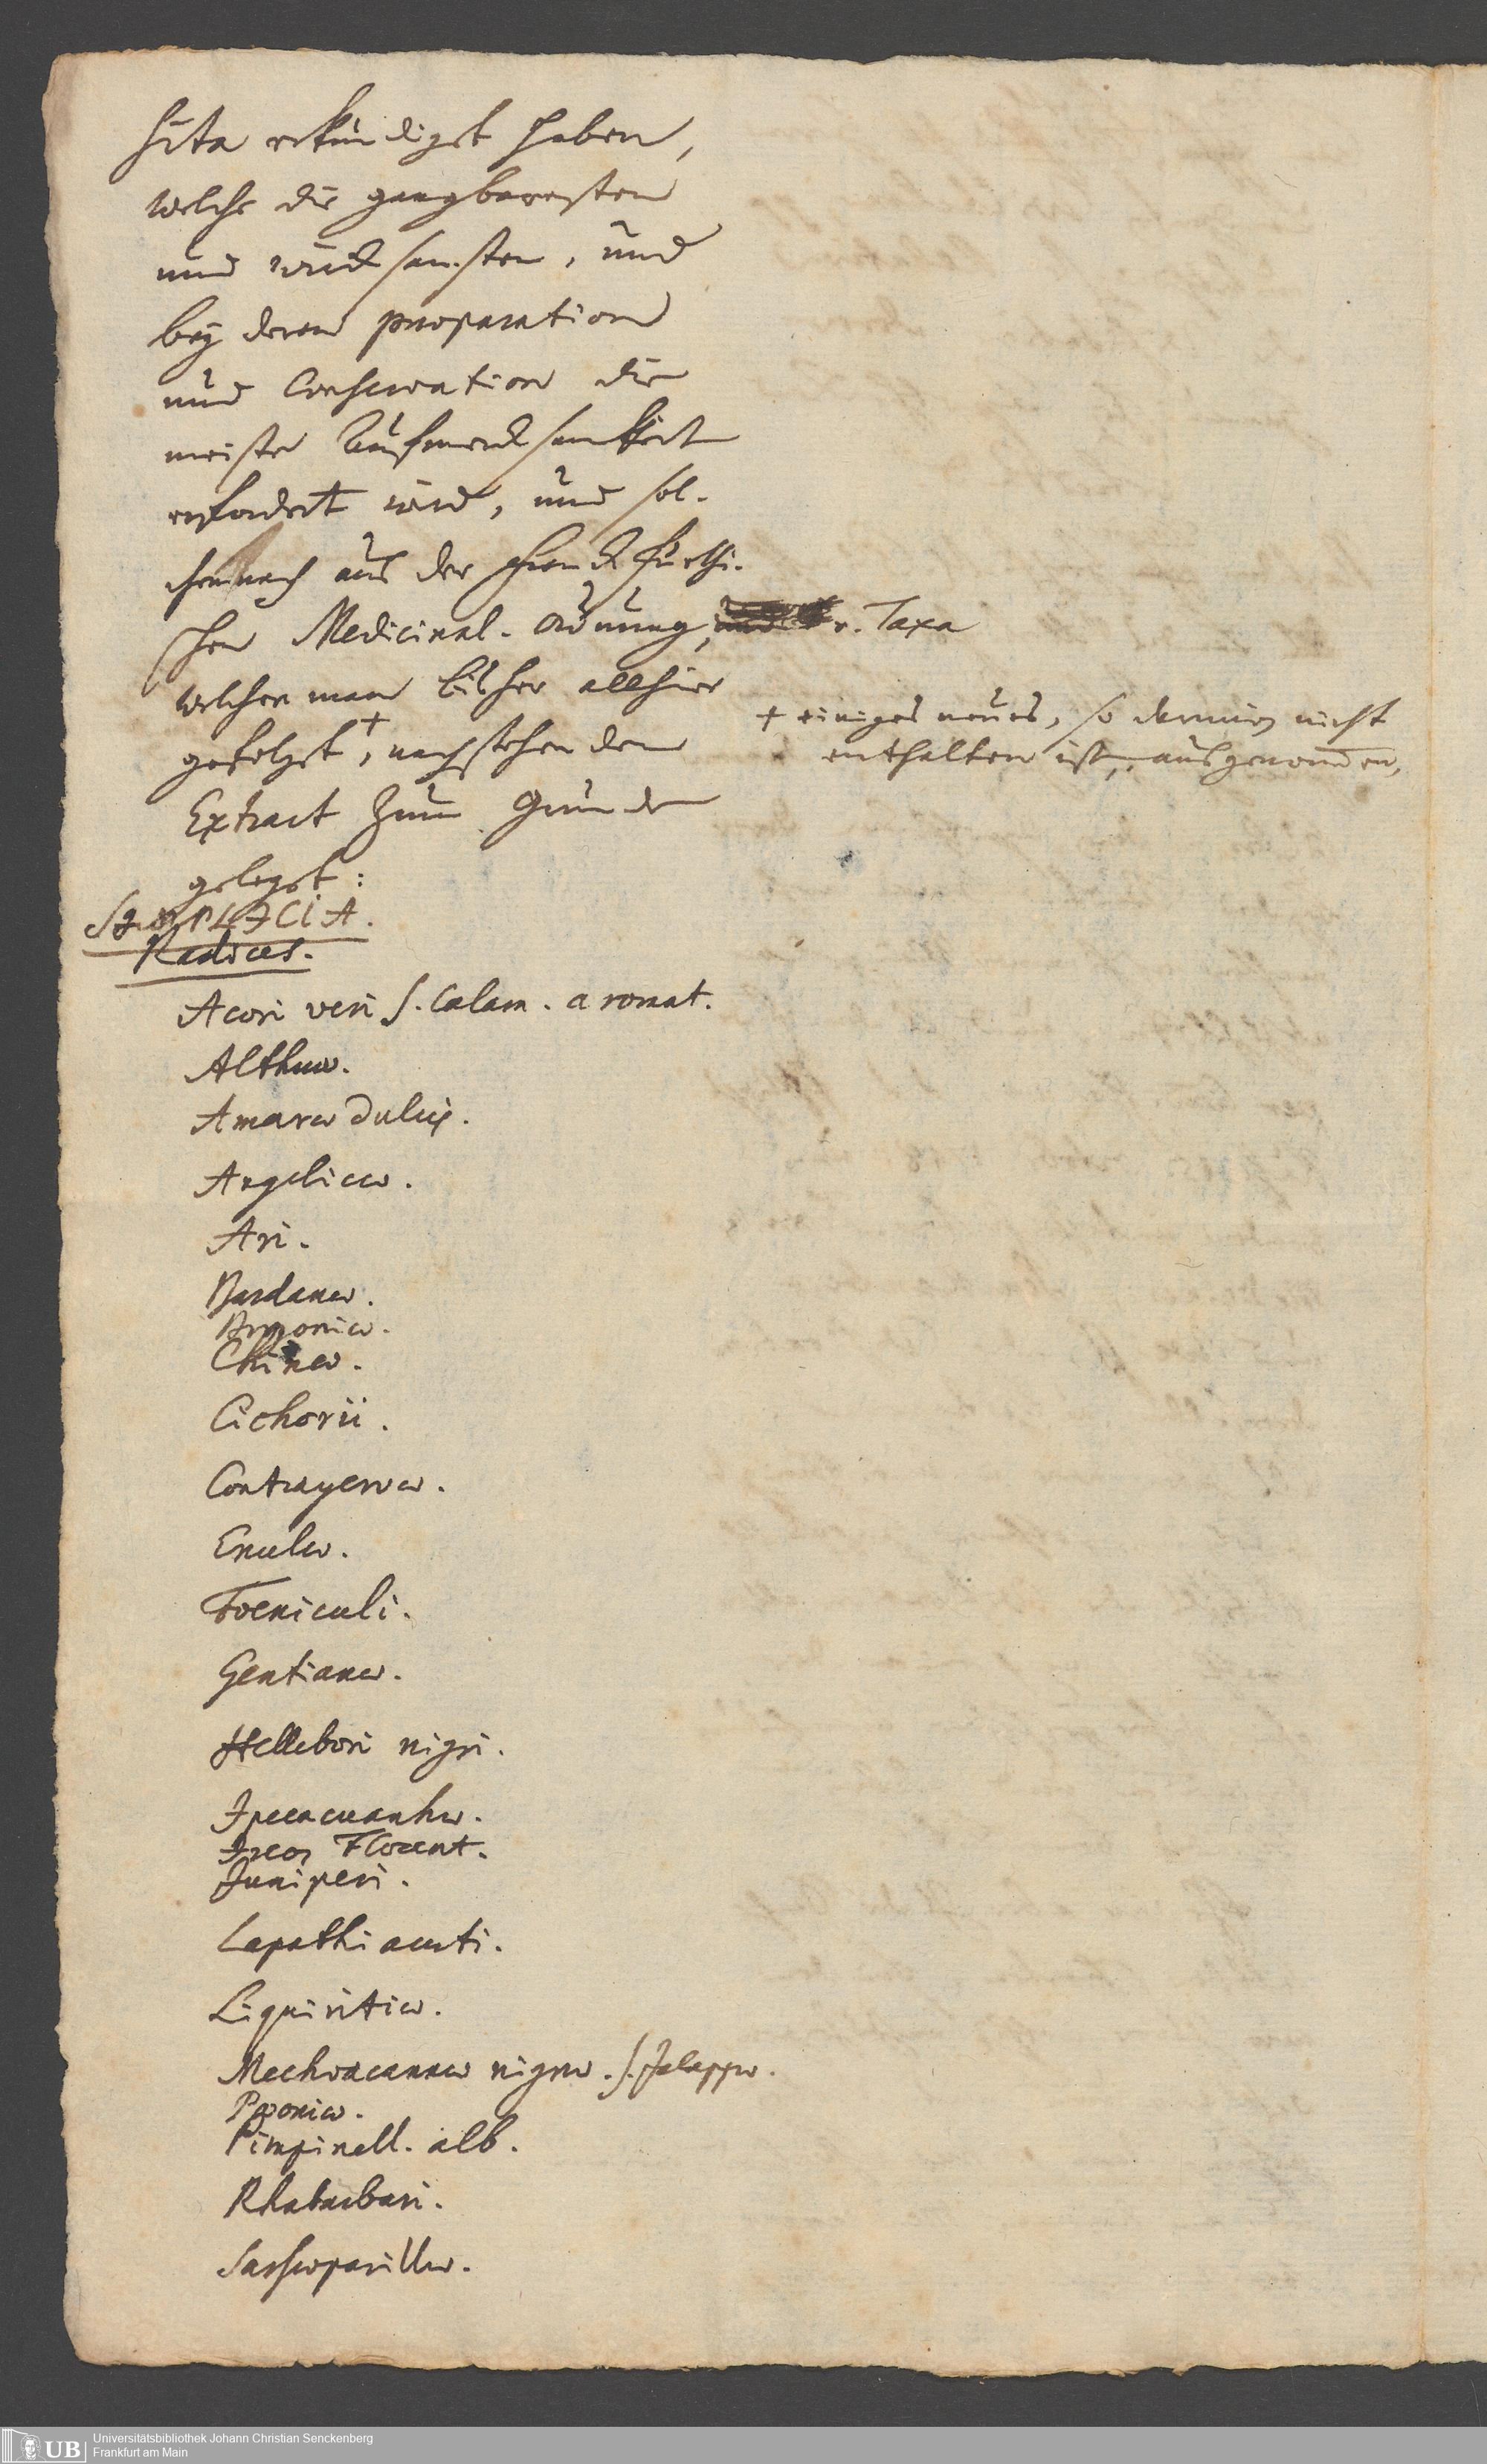 sita erkundiget haben,
welche die gangbaresten
und würcksamsten, und
bey deren praeparation
und Conservation die
meiste Aufmercksamkeit
erfordert wird, und sol-
chemnach aus der Franckfurthi-
schen Medicinal-Ordnung, u. Taxa
welcher man bisher allhier
gefolget +, nachstehenden
+ einiges neues, so darinnen nicht
enthalten ist, ausgenommen,
Extract zum Grunde
geleget:
SIMPLICIA.
Radices.
Acori veri s. Calam. aromat.
Althææ.
Amaræ dulcis.
Angelicæ.
Ari.
Bardanæ.
Bryoniæ.
Chinæ.
Cichorii.
Contrayervæ.
Enulæ.
Foeniculi.
Gentianæ.
Hellebori nigri.
Ipecacuanhæ.
Ireos Florent.
Juniperi.
Lapathi acuti.
Liquiritiæ.
Mechoacannæ nigræ. s. Jalappæ.
Pæoniæ.
Pimpinell. alb.
Rhabarbari.
Sarsæparillæ.
UB
Universitätsbibliothek Johann Christian Senckenberg
Frankfurt am Main